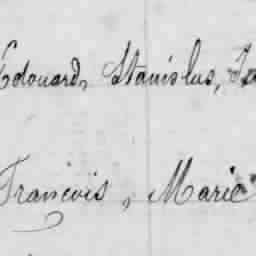 Edouard, Stanislas,
François, Marie